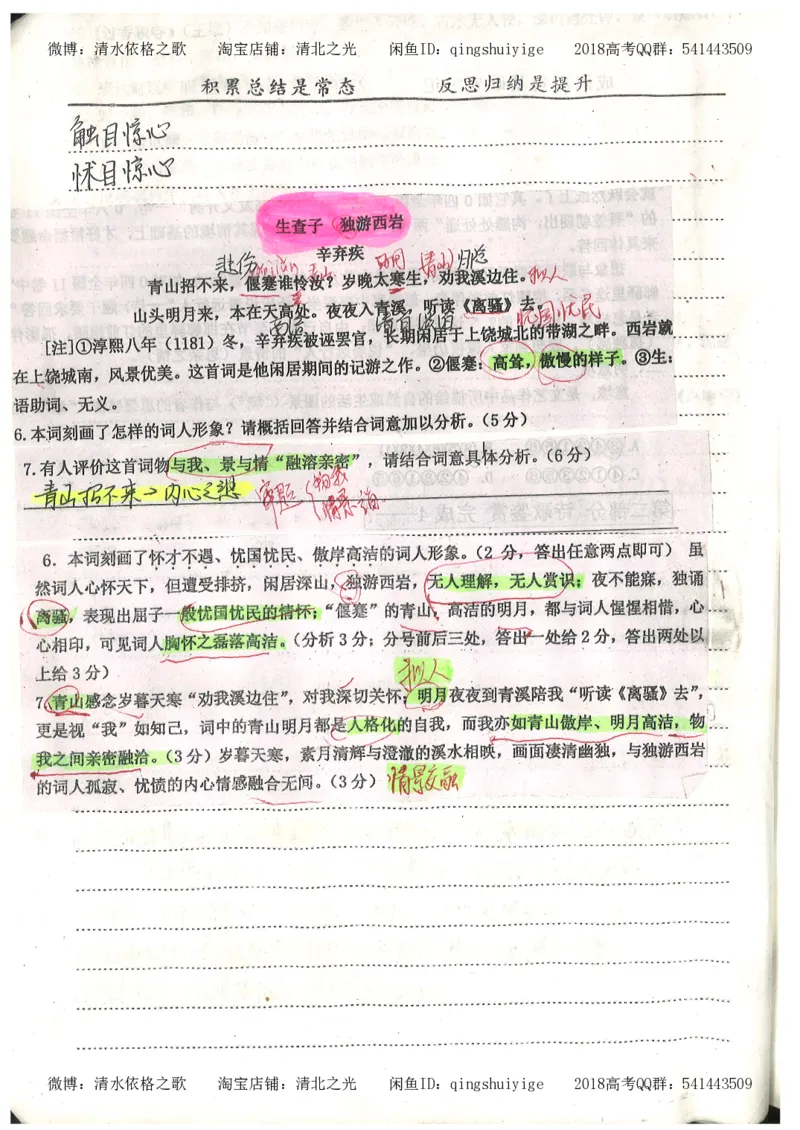 微博：清水依格之歌 淘宝店铺：清北之光 闲鱼ID：qingshuiyige 2018高考QQ群：541443509
积累总结是常态 反思归纳是提升
触目惊心
怵目惊心
生查子 独游西岩
辛弃疾
悲伤 明月 青山 归隐
青山招不来，偃蹇谁怜汝？岁晚太寒生，劝我溪边住。拟人
山头明月来，本在天高处。夜夜入青溪，听读《离骚》去。
忧国忧民
[注]①淳熙八年（1181）冬，辛弃疾被诬罢官，长期闲居于上饶城北的带湖之畔。西岩就
在上饶城南，风景优美。这首词是他闲居期间的记游之作。②偃蹇：高耸，傲慢的样子。③生：
语助词、无义。
6.本词刻画了怎样的词人形象？请概括回答并结合词意加以分析。（5分）
7.有人评价这首词物与我、景与情“融溶亲密”，请结合词意具体分析。（6分）
青山招不来→内心之想 审题 物我 情景
6．本词刻画了怀才不遇、忧国忧民、傲岸高洁的词人形象。（2 分，答出任意两点即可） 虽
然词人心怀天下，但遭受排挤，闲居深山，独游西岩，无人理解，无人赏识；夜不能寐，独诵
离骚，表现出屈子一般忧国忧民的情怀；“偃蹇”的青山，高洁的明月，都与词人惺惺相惜，心
心相印，可见词人胸怀之磊落高洁。（分析 3 分；分号前后三处，答出一处给 2 分，答出两处以
上给 3 分）
拟人
7.青山感念岁暮天寒“劝我溪边住”，对我深切关怀；明月夜夜到青溪陪我“听读《离骚》去”，
更是视“我”如知己，词中的青山明月都是人格化的自我，而我亦如青山傲岸、明月高洁，物
我之间亲密融洽。（3 分）岁暮天寒，素月清辉与澄澈的溪水相映，画面凄清幽独，与独游西岩
的词人孤寂、忧愤的内心情感融合无间。（3 分） 情景交融
微博：清水依格之歌 淘宝店铺：清北之光 闲鱼ID：qingshuiyige 2018高考QQ群：541443509